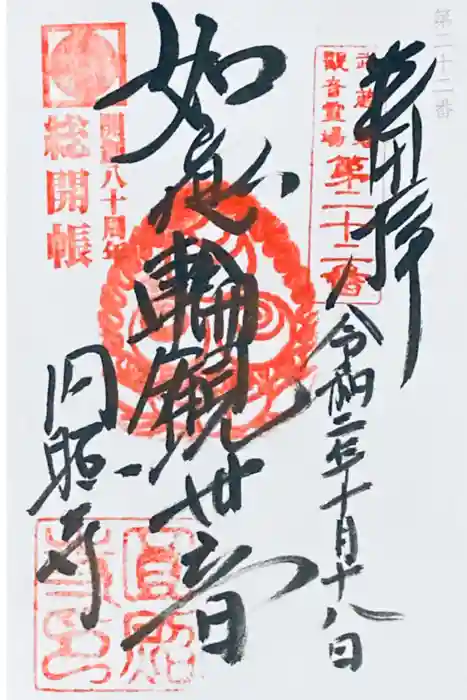 第二十二番
奉拝
武蔵野
観音霊場
第二十二番
令和二年十月十八日
如意輪観世音
開創八十周年
総開帳
円照寺
円照
寺印